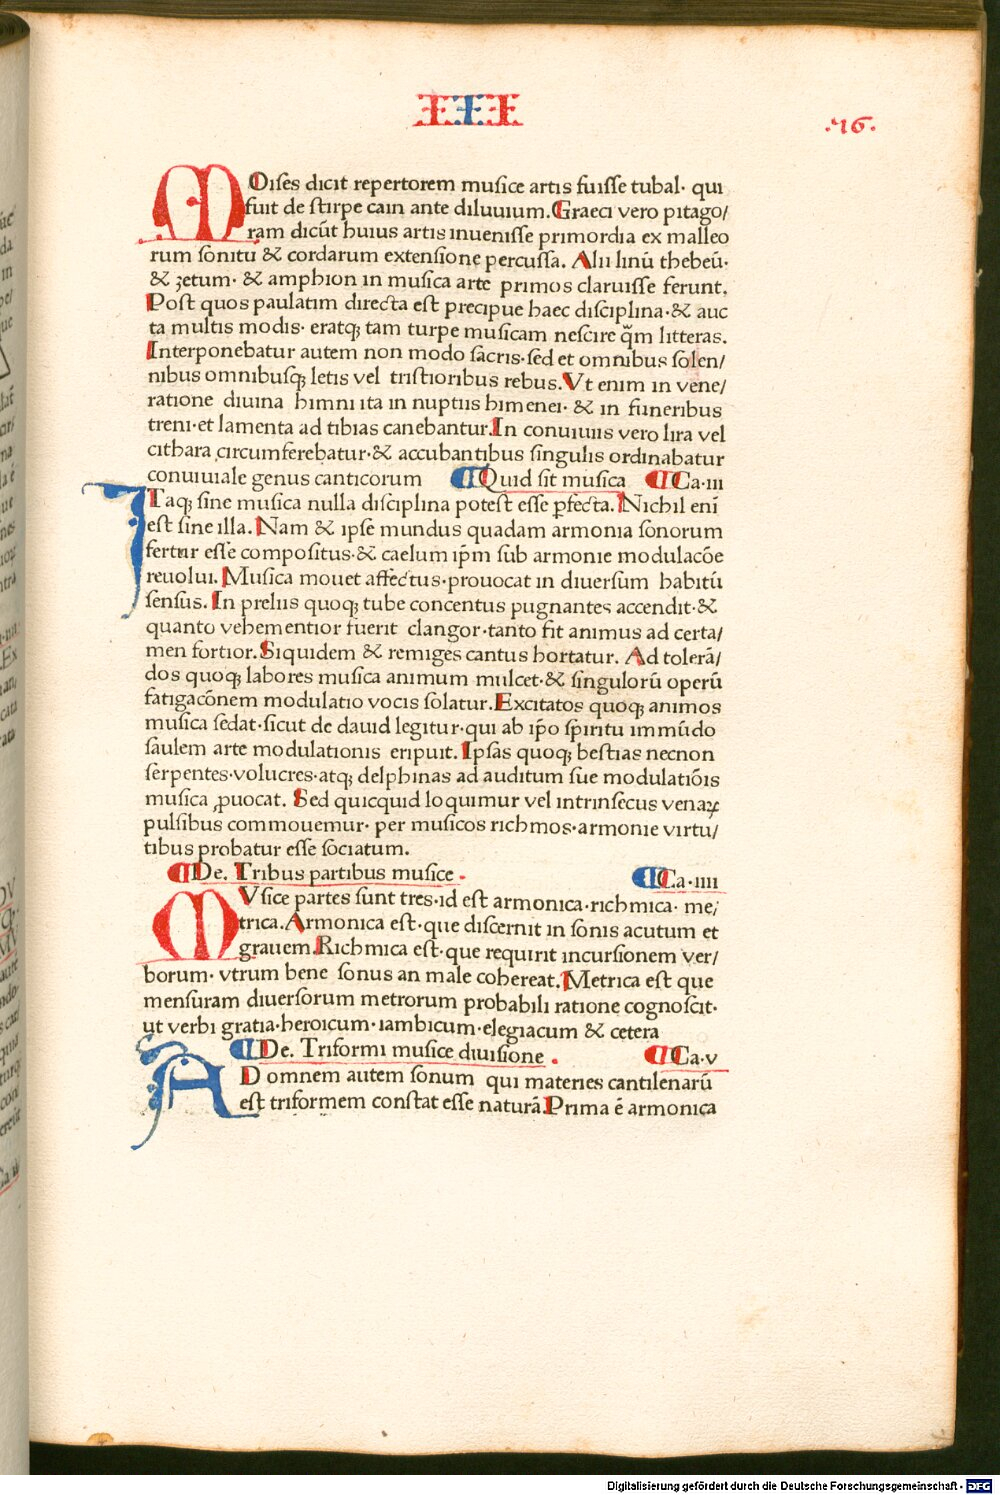 III
.76.
MOises dicit repertorem musice artis fuisse tubal· qui
fuit de stirpe cain ante diluuium. Graeci vero pitago/
ram dicūt huius artis inuenisse primordia ex malleo
rum sonitu & cordarum extensione percussa. Alii linū thebeū·
& zetum· & amphion in musica arte primos claruisse ferunt.
Post quos paulatim directa est precipue haec disciplina·& auc
ta multis modis· eratqꝫ tam turpe musicam nescire q̄m litteras.
Interponebatur autem non modo sacris·sed et omnibus solen/
nibus omnibusqꝫ letis vel tristioribus rebus. Vt enim in vene/
ratione diuina himni ita in nuptiis himenei· & in funeribus
treni·et lamenta ad tibias canebantur. In conuiuiis vero lira vel
cithara circumferebatur·& accubantibus singulis ordinabatur
conuiuiale genus canticorum ¶ Quid sit musica ¶ Ca·iii
ITaqꝫ sine musica nulla disciplina potest esse ꝑfecta. Nichil eni̅
est sine illa. Nam & ipse mundus quadam armonia sonorum
fertur esse compositus·& caelum ip̄m sub armonie modulacōe
reuolui. Musica mouet affectus·prouocat in diuersum habitū
sensus. In preliis quoqꝫ tube concentus pugnantes accendit·&
quanto vehementior fuerit clangor·tanto fit animus ad certa/
men fortior. Siquidem & remiges cantus hortatur. Ad tolerā/
dos quoqꝫ labores musica animum mulcet·& singulorū operū
fatigacōnem modulatio vocis solatur. Excitatos quoqꝫ animos
musica sedat·sicut de dauid legitur·qui ab ip̄o spiritu immūdo
saulem arte modulationis eripuit. Ipsas quoqꝫ bestias necnon
serpentes·volucres·atqꝫ delphinas ad auditum sue modulatiōis
musica ꝓuocat. Sed quicquid loquimur vel intrinsecus venaꝝ
pulsibus commouemur· per musicos richmos·armonie virtu/
tibus probatur esse sociatum.
¶ De. Tribus partibus musice. ¶ Ca·iiii
MVsice partes sunt tres·id est armonica·richmica· me/
trica. Armonica est·que discernit in sonis acutum et
grauem. Richmica est·que requirit incursionem ver/
borum· vtrum bene sonus an male cohereat. Metrica est que
mensuram diuersorum metrorum probabili ratione cognoscit·
ut verbi gratia·heroicum·iambicum·elegiacum & cetera
¶ De. Triformi musice diuisione . ¶ Ca·v
AD omnem autem sonum qui materies cantilenarū
est triformem constat esse naturā. Prima ē armonica
Digitalisierung gefördert durch die Deutsche Forschungsgemeinschaft - DFG